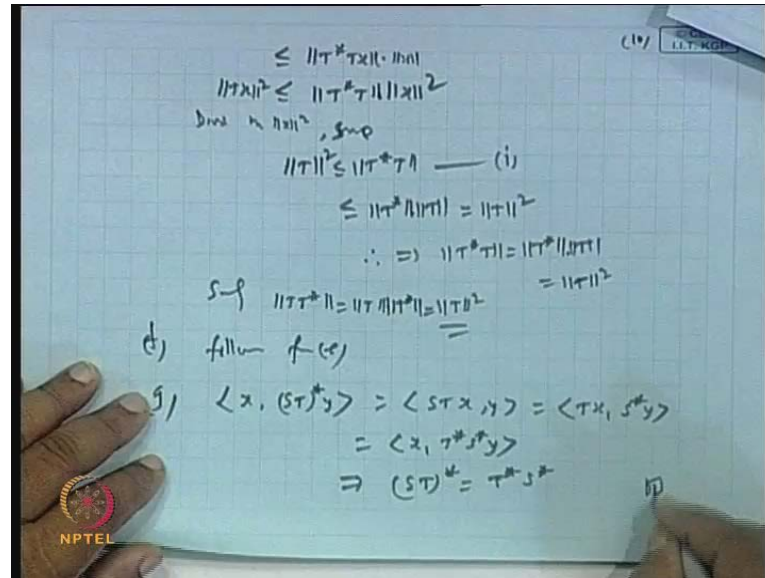 (10)
I.I.T. KGP
≤ ||T*Tx||·||x||
||Tx||² ≤ ||T*T|| ||x||²
||x||², sup
||T||² ≤ ||T*T|| —— (i)
≤ ||T*|| ||T|| = ||T||²
∴ ⇒ ||T*T|| = ||T*||.||T||
= ||T||²
||TT*|| = ||T|| ||T*|| = ||T||²
f) follows from (e)
g) <x, (ST)*y> = <STx, y> = <Tx, S*y>
= <x, T*S*y>
⇒ (ST)* = T*S*
NPTEL